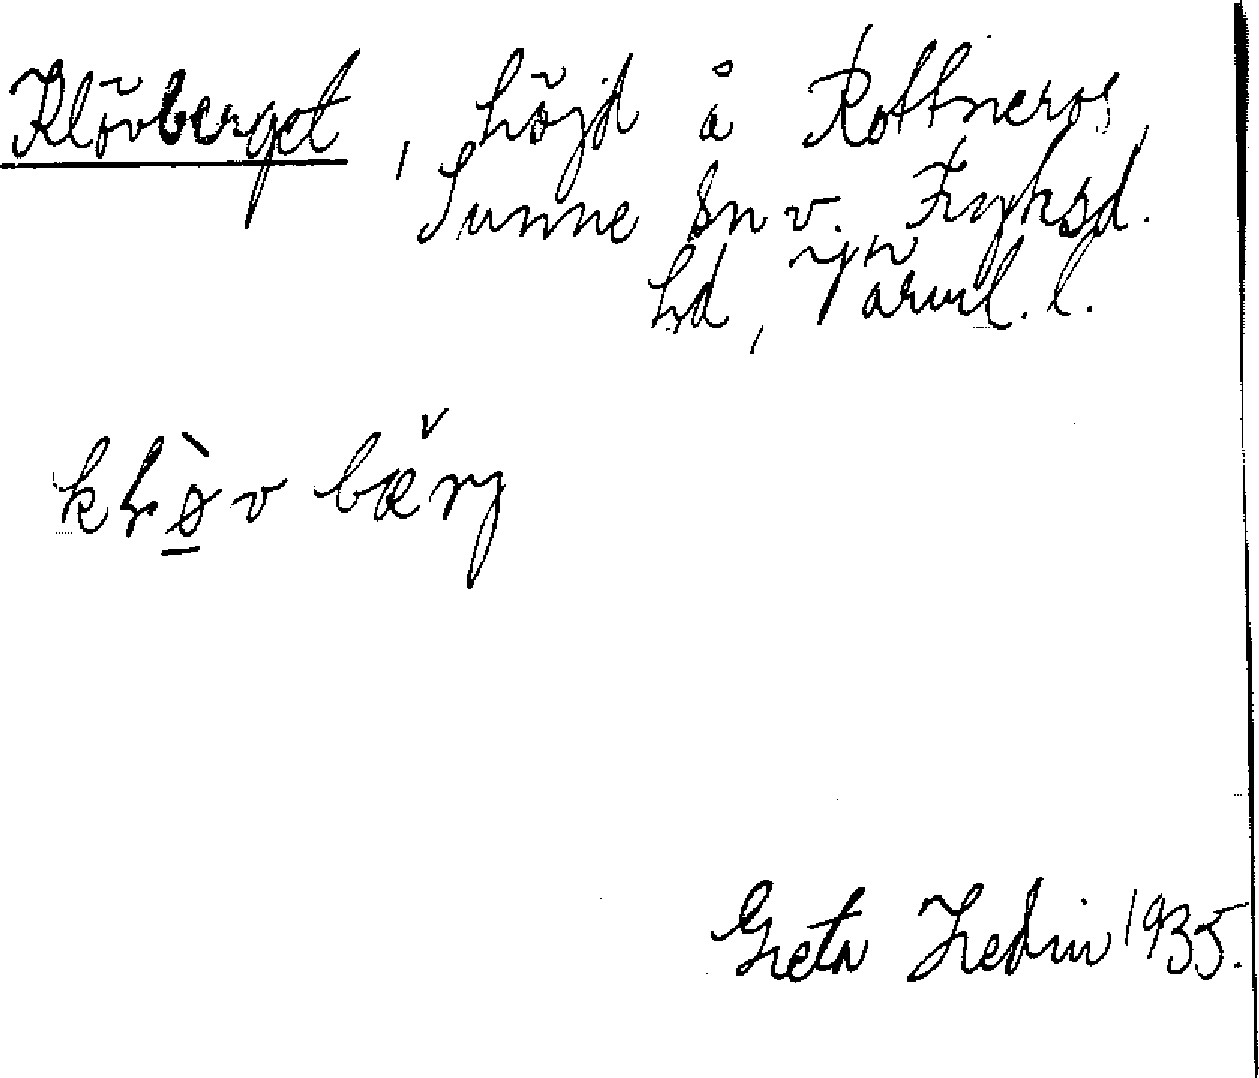 Klövberget, höjd å Rottneros,
Sunne sn v. Fryksd.
hd, Värml. l.
Greta Hedin 1935.